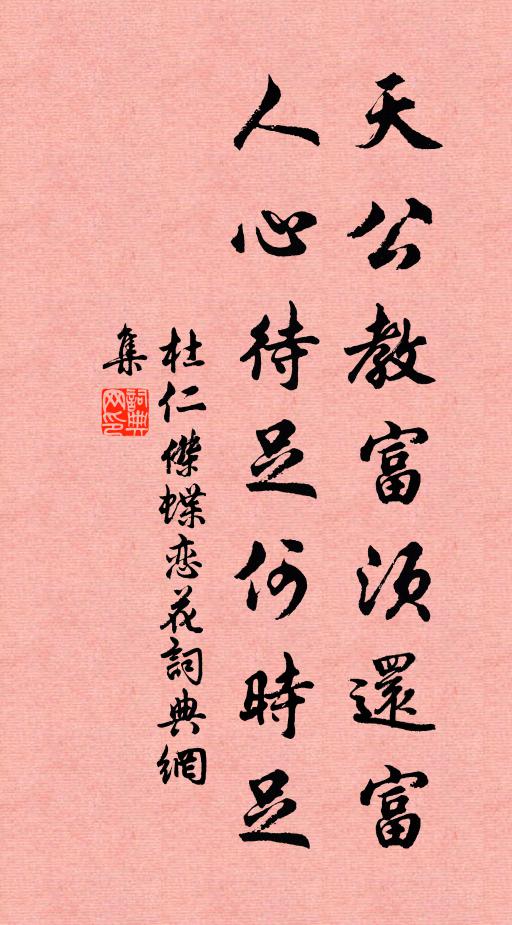 天公教富須還富
人心待足何時足
杜仁傑蝶恋花詞典網
集
詞典
网印